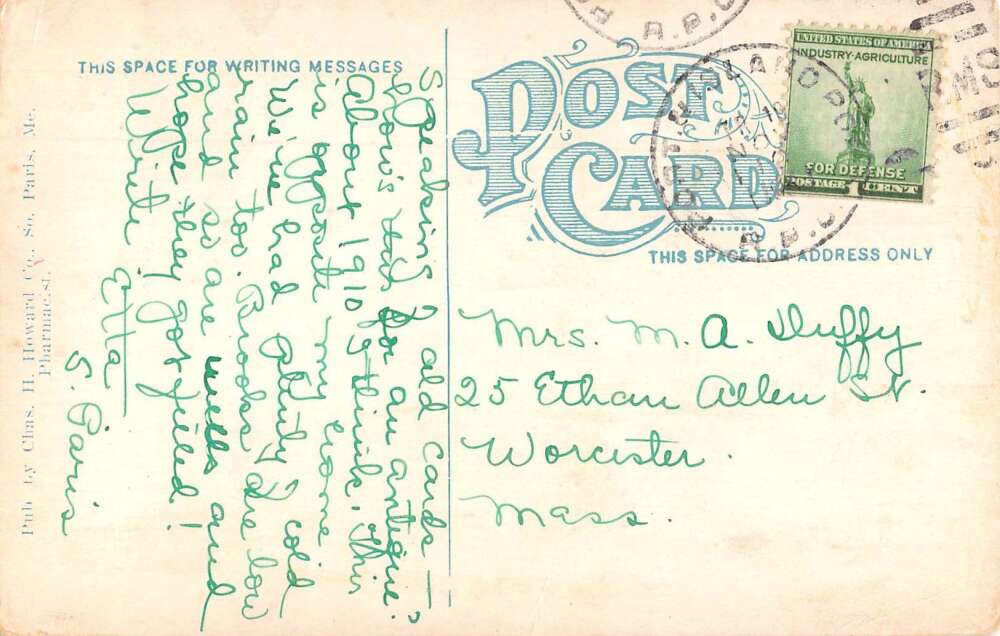 THIS SPACE FOR WRITING MESSAGES
POST CARD
THIS SPACE FOR ADDRESS ONLY
UNITED STATES OF AMERICA
INDUSTRY·AGRICULTURE
FOR DEFENSE
POSTAGE 1 CENT
R.P.O.
R.P.O.
Speaking of old cards —
How's this for an antique?
About 1910 I think. This
is opposite my home
We've had plenty cold
rain too. Brooks are low
and so are wells and
hope they get filled!
Write!
Etta
S. Paris
Mrs. M. A. Duffy
25 Ethan Allen St.
Worcester.
Mass.
Pub by Chas. H. Howard Co., So. Paris, Me.
Pharmacist.